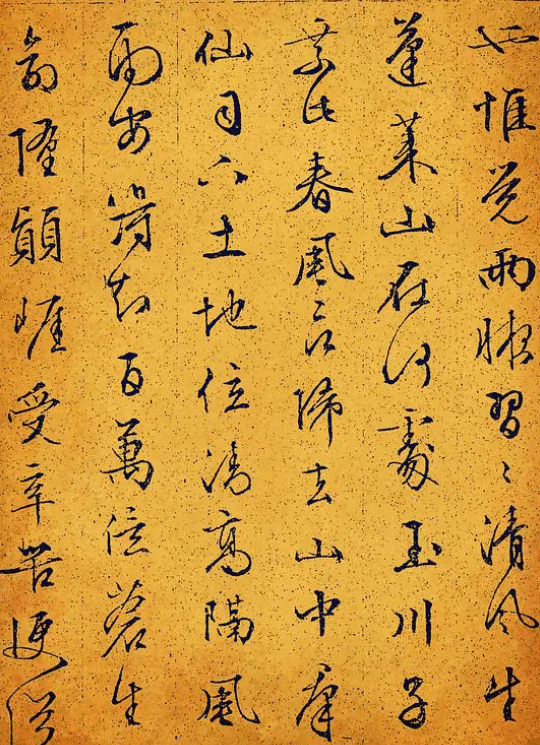 也惟覺兩腋習〻清風生
蓬萊山在何處玉川子
乘此春風欲歸去山中群
仙司下土地位清高隔風
雨安得知百萬億蒼生
命墮顛崖受辛苦便從